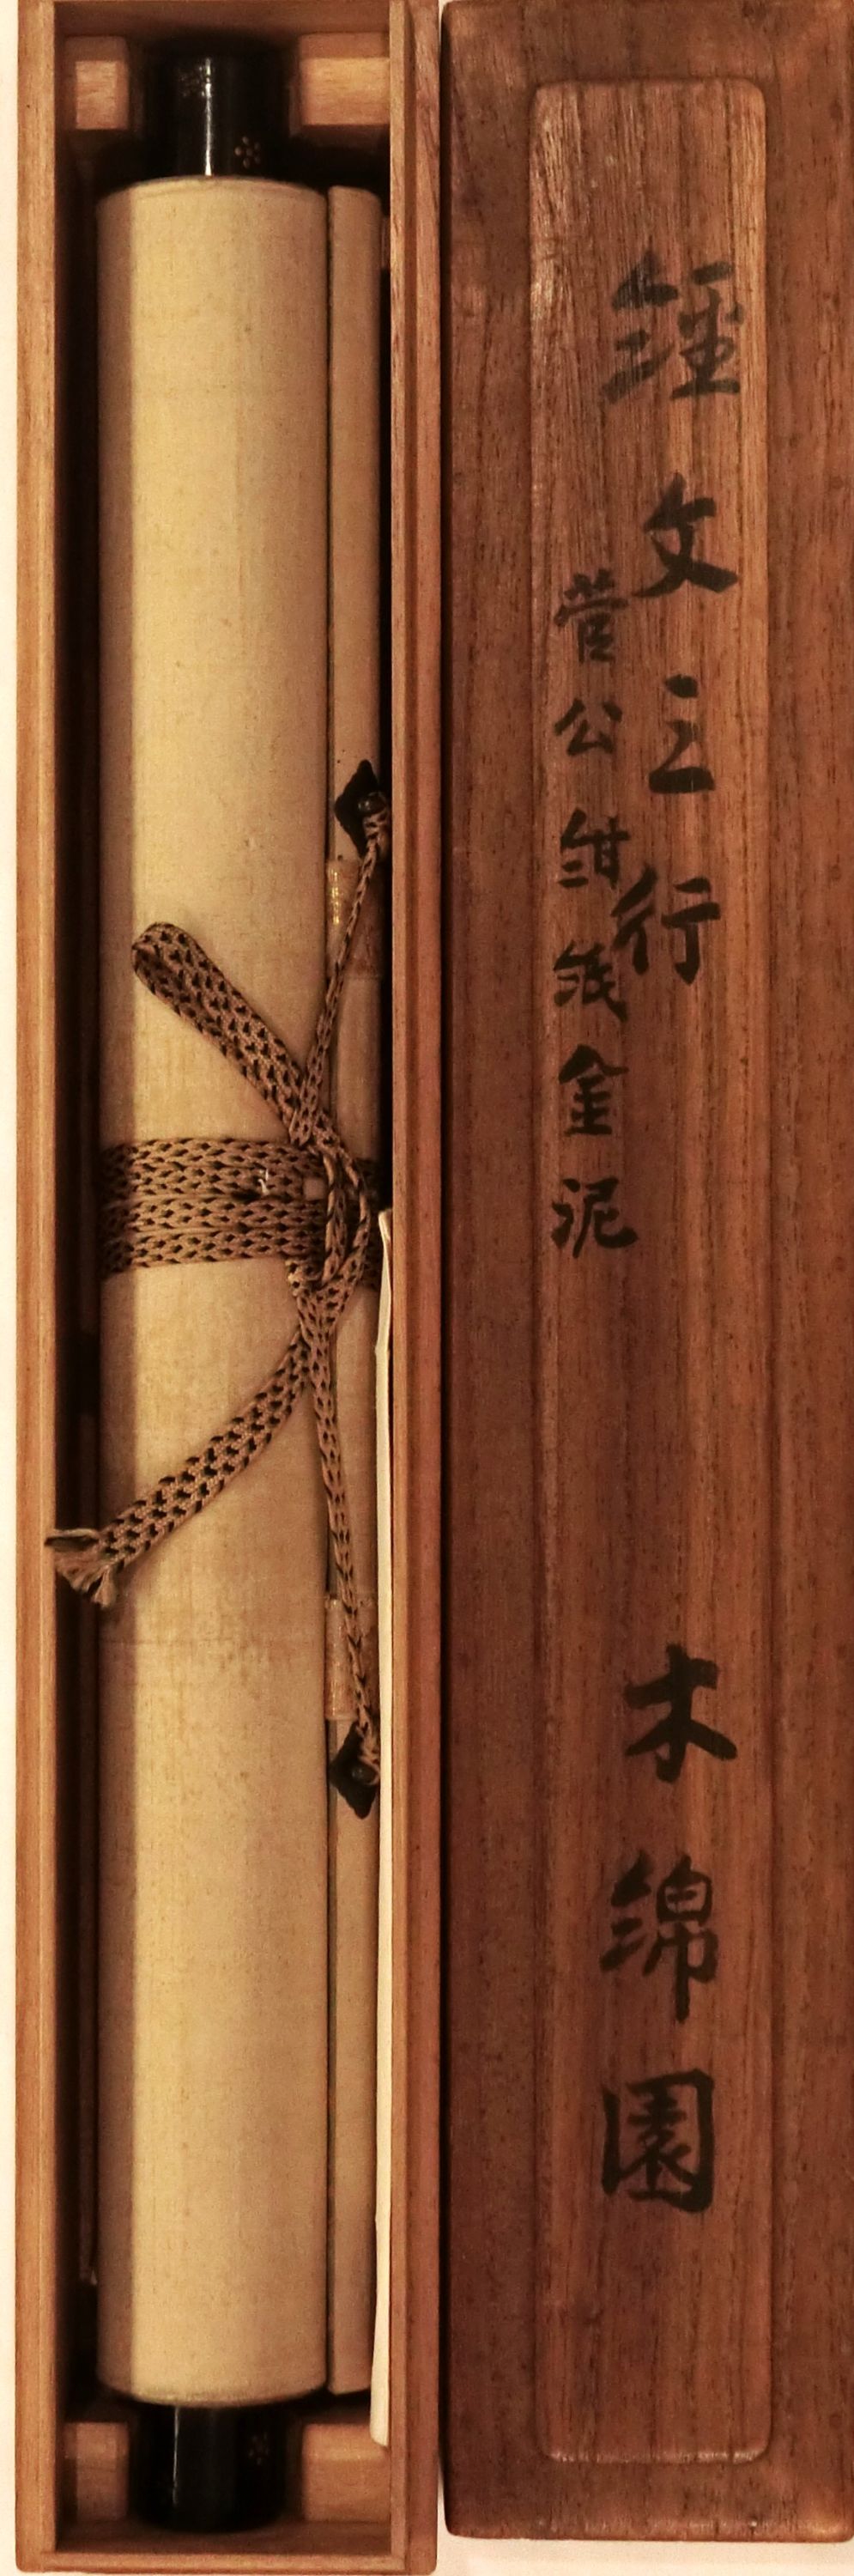 經文三行
菅公紺紙金泥
木綿園